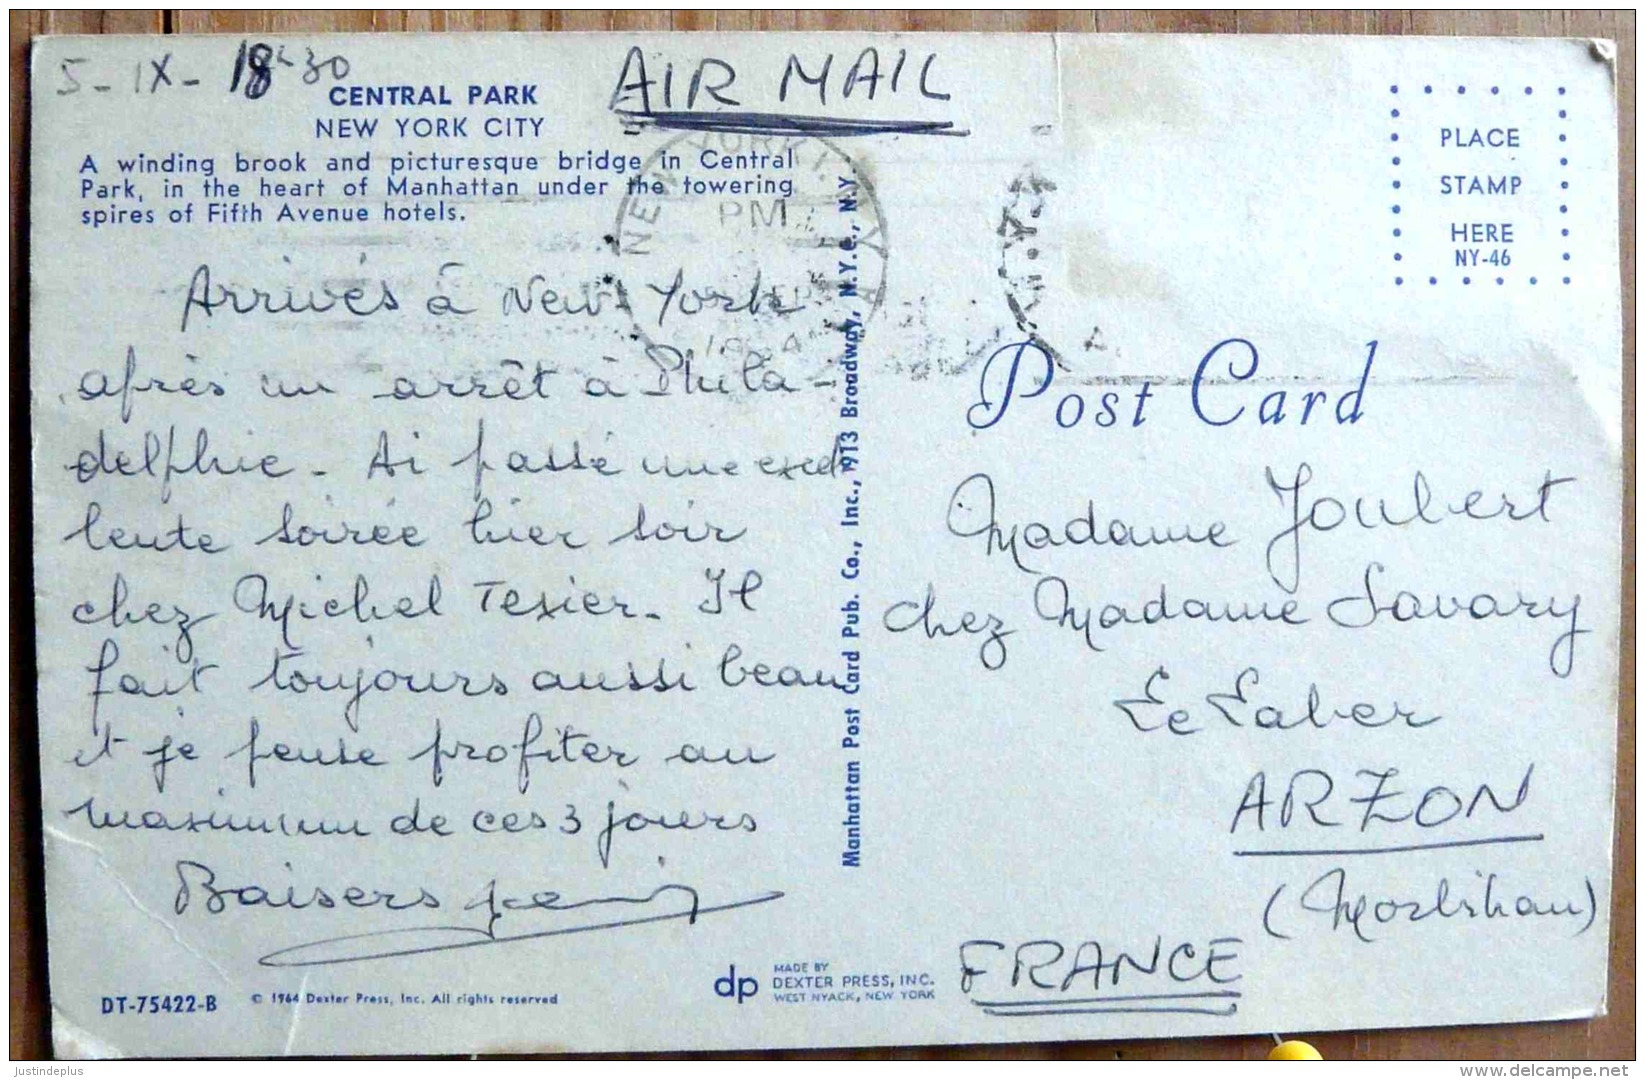 5-IX- 18h30
AIR MAIL
CENTRAL PARK
NEW YORK CITY
A winding brook and picturesque bridge in Central
Park, in the heart of Manhattan under the towering
spires of Fifth Avenue hotels.
NEW YORK 1, N.Y.
PM
PLACE
STAMP
HERE
NY-46
Arrivés à New-York
après un arrêt à Phila-
delphie - Ai passé une excel
lente soirée hier soir
chez Michel Texier. Il
fait toujours aussi beau
et je pense profiter au
maximum de ces 3 jours
Baisers
Manhattan Post Card Pub. Co., Inc., 913 Broadway, N.Y.C., N.Y.
Post Card
Madame Joubert
chez Madame Savary
ARZON
(Morbihan)
FRANCE
DT-75422-B
© 1964 Dexter Press, Inc. All rights reserved
dp
MADE BY
DEXTER PRESS, INC.
WEST NYACK, NEW YORK
Justindeplus
delcampe.net